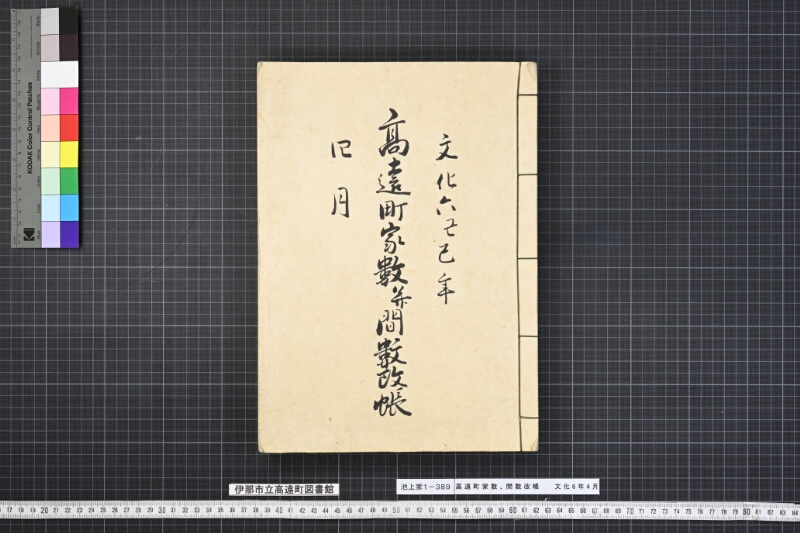 文化六己巳年
高遠町家数并間数改帳
四月
KODAK Color Control Patches
Kodak
伊那市立高遠町図書館
池上家1-389 高遠町家数、間数改帳 文化6年4月